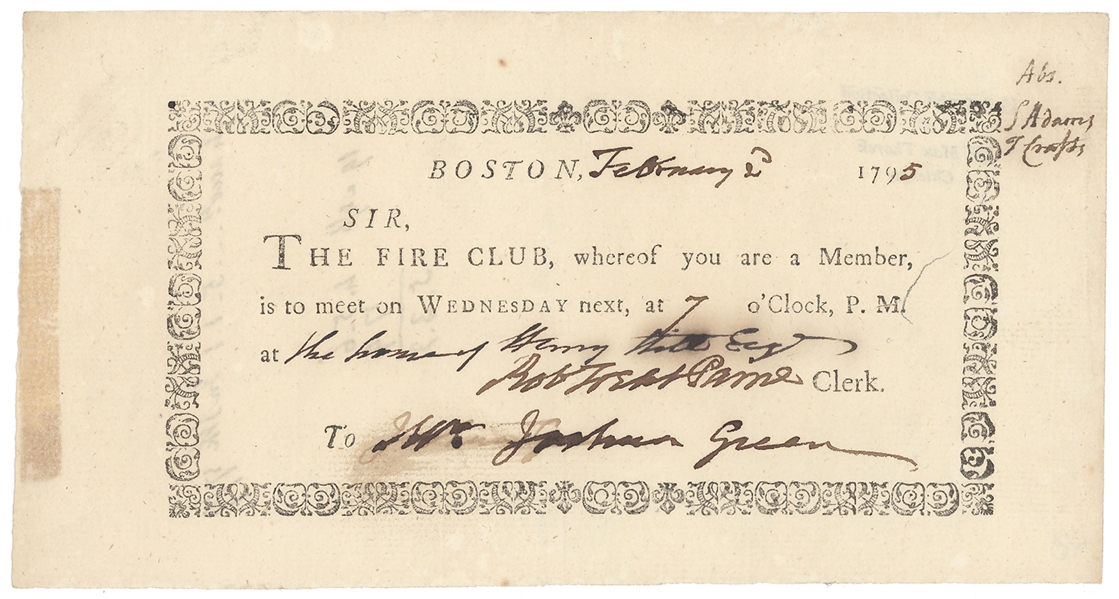 Abs.
S Adams
T Crafts
BOSTON, February 2d 1795
SIR,
THE FIRE CLUB, whereof you are a Member,
is to meet on WEDNESDAY next, at 7 o'Clock, P. M.
at the house of Henry Hill Esqr
Rob Treat Paine Clerk.
To Mr. Joshua Green